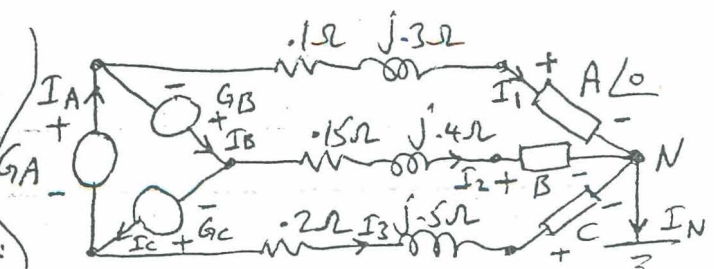 .1Ω j.3Ω
IA + - GB + IB I1 + A∠0 -
GA - .15Ω j.4Ω I2 + B - N
IC + GC - .2Ω I3 j.5Ω + C - IN